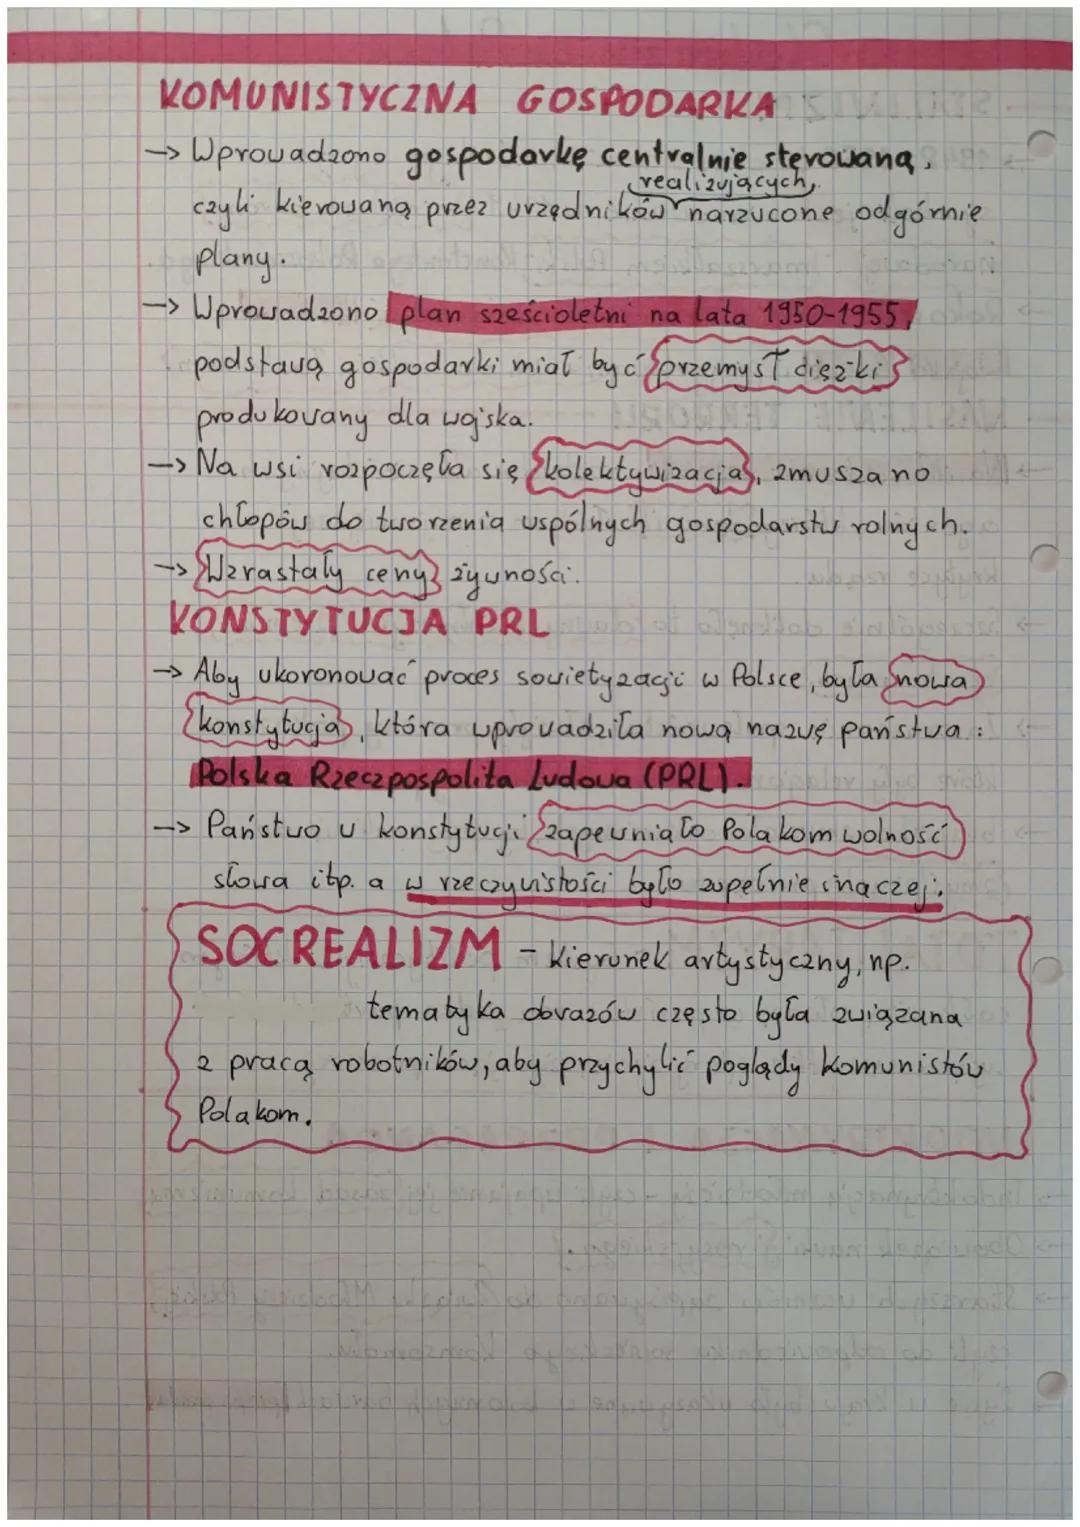 KOMUNISTYCZNA GOSPODARKA
→ Wprowadzono gospodarkę centralnie sterowaną,
realizujących
czyli kierowaną przez urzędników narzucone odgórnie
plany.
→ Wprowadzono plan sześcioletni na lata 1950-1955,
podstawą gospodarki miał być przemysł ciężki
produkowany dla wojska.
→ Na wsi rozpoczęła się kolektywizacja, zmuszano
chłopów do tworzenia wspólnych gospodarstw rolnych.
→ Wzrastały ceny żywności.
KONSTYTUCJA PRL
→ Aby ukoronować proces sowietyzacji w Polsce, była nowa
konstytucja, która wprowadziła nową nazwę państwa:
Polska Rzeczpospolita Ludowa (PRL).
→ Państwo w konstytucji zapewniało Polakom wolność
słowa itp. a w rzeczywistości było zupełnie inaczej.
SOCREALIZM - kierunek artystyczny, np.
tematyka obrazów często była związana
z pracą robotników, aby przychylić poglądy komunistów
Polakom.